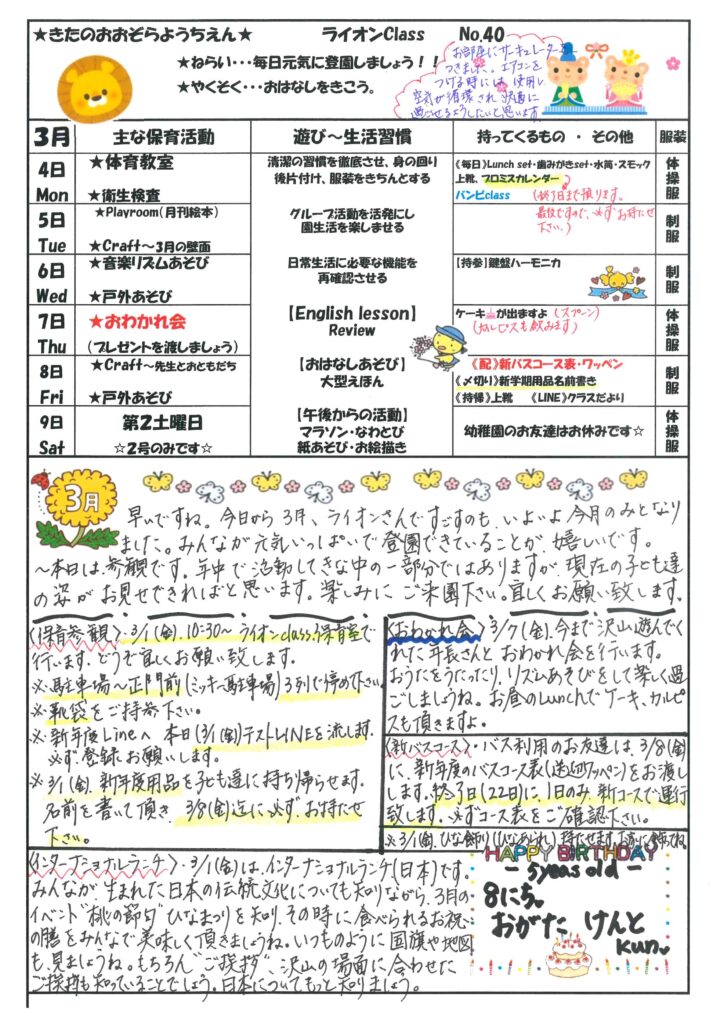 ★きたのおおぞらようちえん★ ライオンClass No,40
★ねらい・・・毎日元気に登園しましょう！！
★やくそく・・・おはなしをきこう。
お部屋にサーキュレーター
つきました。エアコンを
つける時には、使用し
空気が循環され快適に
過ごせるようしたいと思います
3月 主な保育活動 遊び～生活習慣 持ってくるもの ・ その他 服装
4日 Mon
★体育教室
★衛生検査
清潔の習慣を徹底させ、身の回り
後片付け、服装をきちんとする
《毎日》Lunch set・歯みがきset・水筒・スモック
上靴、プロミスカレンダー
バンビclass (終了日まで預ります。
最後ですので、必ずお持たせ
下さい。)
体操服
5日 Tue
★Playroom（月刊絵本）
★Craft～3月の壁面
グループ活動を活発にし
園生活を楽しませる
制服
6日 Wed
★音楽リズムあそび
★戸外あそび
日常生活に必要な機能を
再確認させる
【持参】鍵盤ハーモニカ
制服
7日 Thu
★おわかれ会
（プレゼントを渡しましょう）
【English lesson】
Review
ケーキが出ますよ (スプーン)
(カルピスも飲みます)
体操服
8日 Fri
★Craft～先生とおともだち
★戸外あそび
【おはなしあそび】
大型えほん
《配》新バスコース表・ワッペン
《〆切り》新学期用品名前書き
《持帰》上靴 《LINE》クラスだより
制服
9日 Sat
第2土曜日
☆2号のみです☆
【午後からの活動】
マラソン・なわとび
紙あそび・お絵描き
幼稚園のお友達はお休みです☆
体操服
3月
早いですね。今日から3月、ライオンさんですごすのも、いよいよ今月のみとなり
ました。みんなが元気いっぱいで登園できていることが嬉しいです。
～本日は、参観です。年中で活動してきた中の一部分ではありますが、現在の子ども達
の姿がお見せできればと思います。楽しみにご来園下さい。宜しくお願い致します。
〈保育参観〉・3/1(金).10:30～ライオンclass.保育室で
行います。どうぞ宜しくお願い致します。
※駐車場～正門前(ミッキー駐車場)3列で停め下さい。
※靴袋をご持参下さい。
※新年度Lineへ 本日(3/1(金))テストLINEを流します。
必ず、登録お願いします。
※3/1(金).新年度用品を子ども達に持ち帰らせます。
名前を書いて頂き 3/8(金)迄に必ず、お持たせ
下さい。
〈おわかれ会〉3/7(金).今まで沢山遊んでく
れた年長さんとおわかれ会を行います。
おうたをうたったり、リズムあそびをして楽しく過
ごしましょうね。お昼のLunchでケーキ、カルピ
スも頂きますよ。
〈新バスコース〉・バス利用のお友達は、3/8(金)
に、新年度のバスコース表(送迎ワッペン)をお渡し
します。終了日(22日)に、1日のみ、新コースで運行
致します。必ずコース表をご確認下さい。
※3/1(金).ひな飾り(ひなあられ)持たせます。お家に飾ってね。
〈インターナショナルランチ〉・3/1(金)は、インターナショナルランチ(日本)です。
みんなが生まれた日本の伝統文化についても知りながら、3月の
イベント"桃の節句"ひなまつりを知り、その時に食べられるお祝い
の膳をみんなで美味しく頂きましょうね。いつものように国旗や地図
も見ましょうね。もちろん"ご挨拶"、沢山の場面に合わせた
ご挨拶も知っていることでしょう。日本についてもっと知りましょう。
HAPPY BIRTHDAY
－5yeas old－
8にち。
おがた けんと
kun。